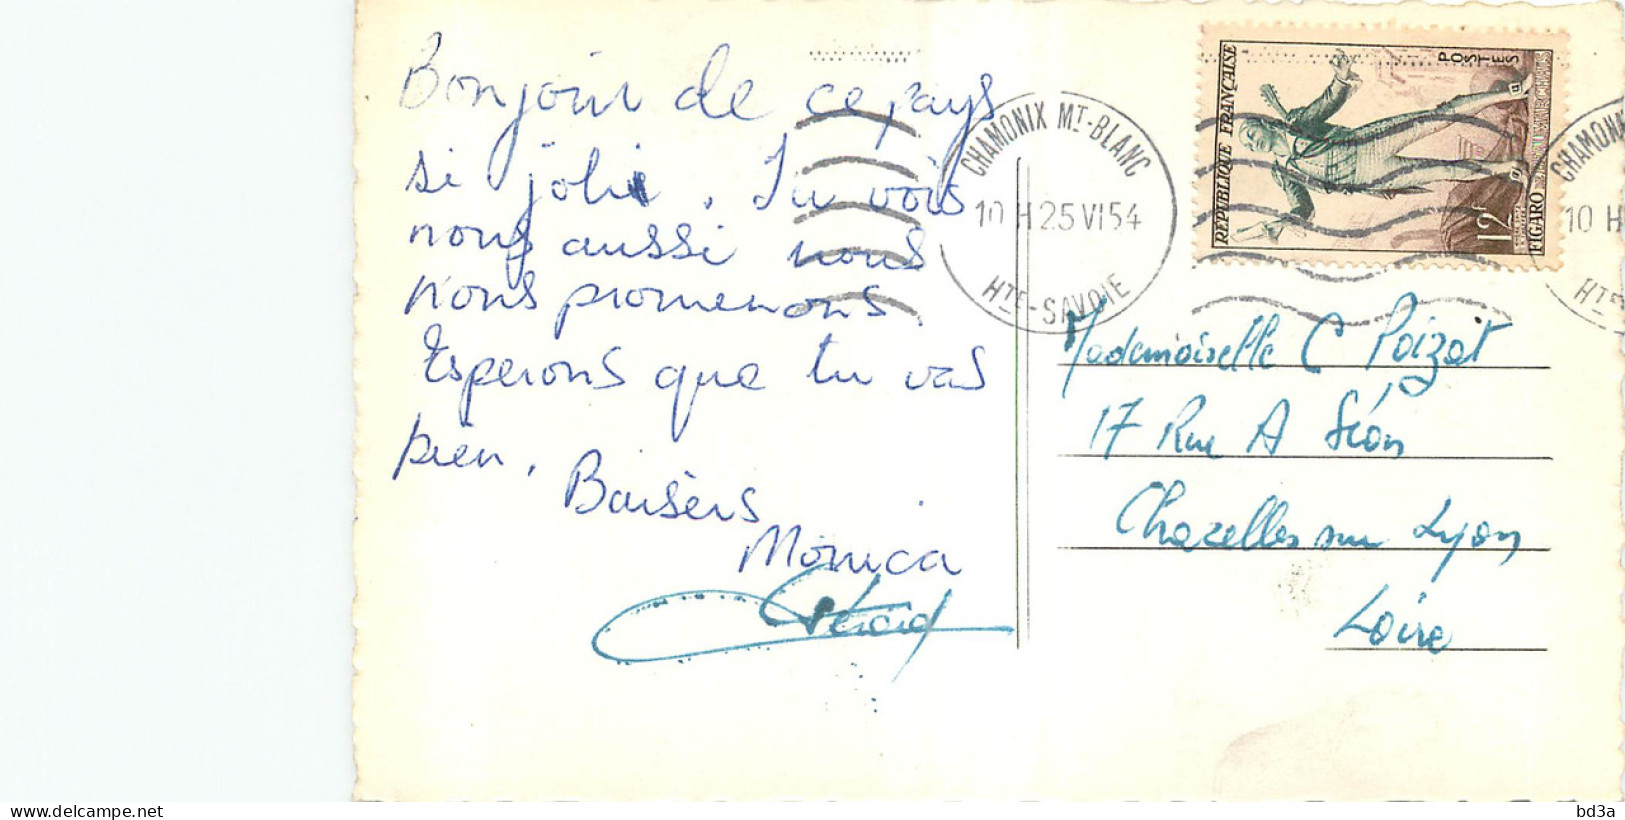 Bonjour de ce pays
si jolie. Tu vois
nous aussi nous
nous promenons.
Esperons que tu vas
bien. Baisers
Monica
Gérard
CHAMONIX MT-BLANC
10 H 25 VI 54
HTE-SAVOIE
RÉPUBLIQUE FRANÇAISE
POSTES
12F
FIGARO
CHAMON
10 H
HTE
Mademoiselle C Poizat
17 Rue A Séon
Chazelles sur Lyon
Loire
bd3a